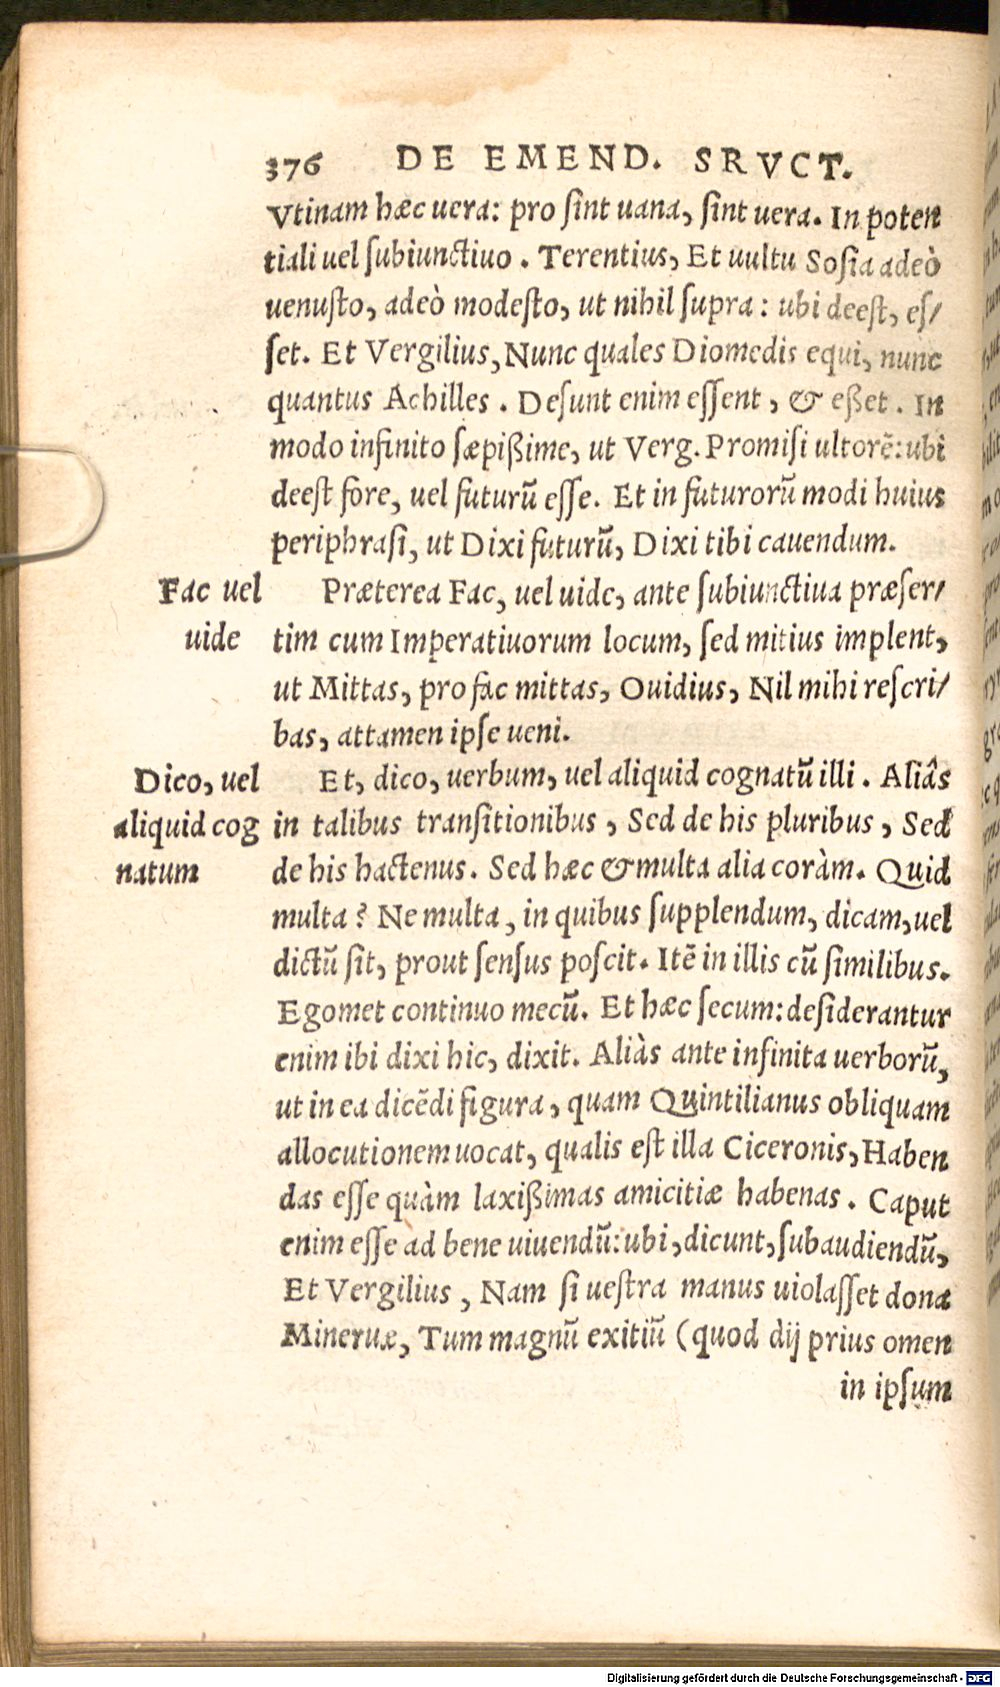 376 DE EMEND. SRVCT.
Vtinam hæc uera: pro ſint uana, ſint uera. In poten
tiali uel ſubiunctiuo. Terentius, Et uultu Soſia adeò
uenuſto, adeò modeſto, ut nihil ſupra: ubi deeſt, eſ/
ſet. Et Vergilius, Nunc quales Diomedis equi, nunc
quantus Achilles. Deſunt enim eſſent, & eßet. In
modo infinito ſæpißime, ut Verg. Promiſi ultorē: ubi
deeſt fore, uel futurū eſſe. Et in futurorū modi huius
periphraſi, ut Dixi futurū, Dixi tibi cauendum.
Fac uel
uide
Præterea Fac, uel uide, ante ſubiunctiua præſer/
tim cum Imperatiuorum locum, ſed mitius implent,
ut Mittas, pro fac mittas, Ouidius, Nil mihi reſcri/
bas, attamen ipſe ueni.
Dico, uel
aliquid cog
natum
Et, dico, uerbum, uel aliquid cognatū illi. Aliâs
in talibus tranſitionibus, Sed de his pluribus, Sed
de his hactenus. Sed hæc & multa alia coràm. Quid
multa? Ne multa, in quibus ſupplendum, dicam, uel
dictū ſit, prout ſenſus poſcit. Itē in illis cū ſimilibus.
Egomet continuo mecū. Et hæc ſecum: deſiderantur
enim ibi dixi hic, dixit. Aliàs ante infinita uerborū,
ut in ea dicēdi figura, quam Quintilianus obliquam
allocutionem uocat, qualis eſt illa Ciceronis, Haben
das eſſe quàm laxißimas amicitiæ habenas. Caput
enim eſſe ad bene uiuendū: ubi, dicunt, ſubaudiendū,
Et Vergilius, Nam ſi ueſtra manus uiolaſſet dona
Mineruæ, Tum magnū exitiū (quod dij prius omen
in ipſum
Digitalisierung gefördert durch die Deutsche Forschungsgemeinschaft - DFG